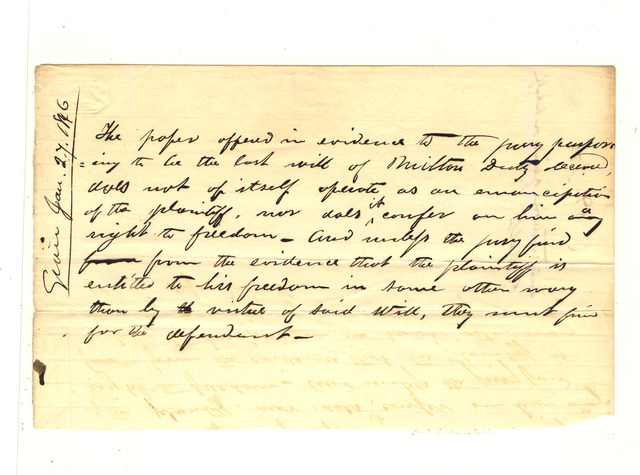 Given Jan. 27. 1846
The paper offered in evidence to the jury purpor
=ing to be the last will of Milton Duty deceased,
does not of itself operate as an emancipation
of the plaintiff, nor does it confer on him any
right to freedom — And unless the jury find
from the evidence that the plaintiff is
entitled to his freedom in some other way
than by virtue of said Will, they must find
for the defendant —